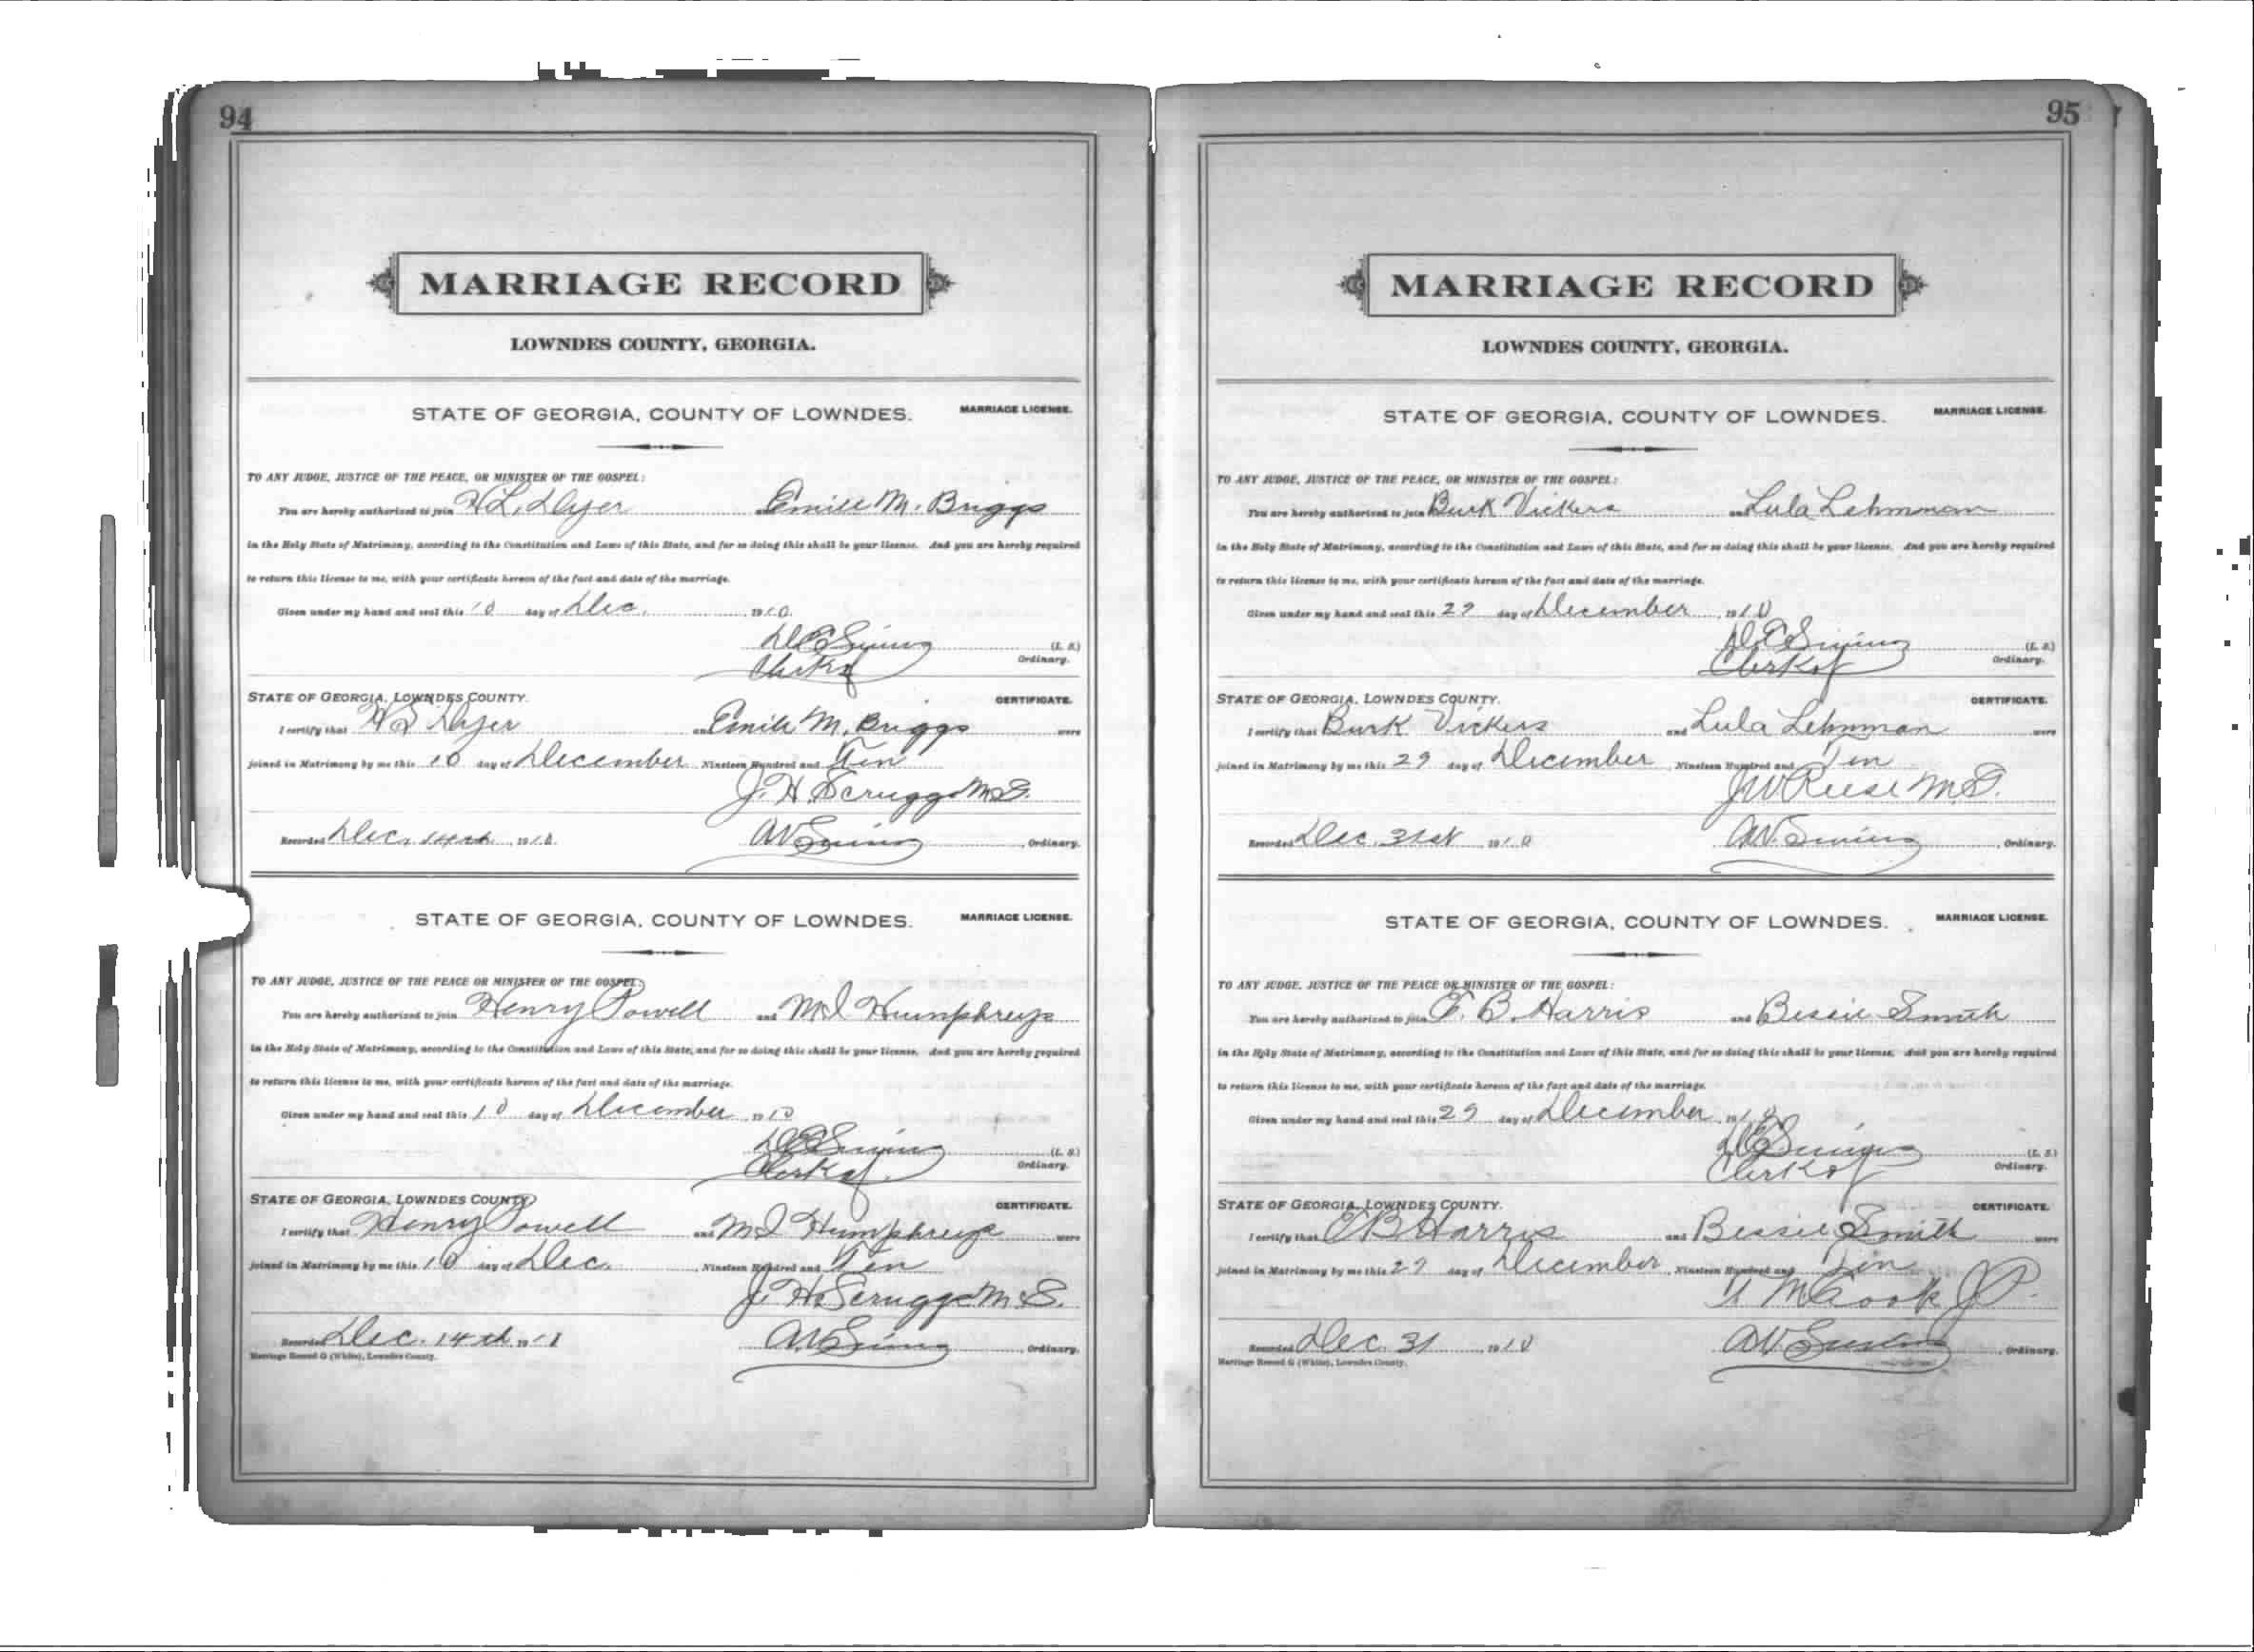 94
MARRIAGE RECORD
LOWNDES COUNTY, GEORGIA.
STATE OF GEORGIA, COUNTY OF LOWNDES. MARRIAGE LICENSE.
TO ANY JUDGE, JUSTICE OF THE PEACE, OR MINISTER OF THE GOSPEL:
You are hereby authorized to join H.L. Dyer and Emile M. Briggs
in the Holy State of Matrimony, according to the Constitution and Laws of this State, and for so doing this shall be your license. And you are hereby required
to return this license to me, with your certificate hereon of the fact and date of the marriage.
Given under my hand and seal this 10 day of Dec. , 1910.
(L. S.)
Clerk Ordinary.
STATE OF GEORGIA, LOWNDES COUNTY. CERTIFICATE.
I certify that Dyer and Emile M. Briggs were
joined in Matrimony by me this 10 day of December, Nineteen Hundred and Ten
J. H. Scruggs M.G.
Recorded Dec. 14th, 1910. , Ordinary.
STATE OF GEORGIA, COUNTY OF LOWNDES. MARRIAGE LICENSE.
TO ANY JUDGE, JUSTICE OF THE PEACE OR MINISTER OF THE GOSPEL:
You are hereby authorized to join Henry Powell and M I Humphreys
in the Holy State of Matrimony, according to the Constitution and Laws of this State, and for so doing this shall be your license. And you are hereby required
to return this license to me, with your certificate hereon of the fact and date of the marriage.
Given under my hand and seal this 10 day of December, 1910
(L. S.)
Clerk Ordinary.
STATE OF GEORGIA, LOWNDES COUNTY. CERTIFICATE.
I certify that Henry Powell and M I Humphreys were
joined in Matrimony by me this 10 day of Dec. , Nineteen Hundred and Ten
J. H. Scruggs M.G.
Recorded Dec. 14th, 19 , Ordinary.
Marriage Record G (White), Lowndes County.
95
MARRIAGE RECORD
LOWNDES COUNTY, GEORGIA.
STATE OF GEORGIA, COUNTY OF LOWNDES. MARRIAGE LICENSE.
TO ANY JUDGE, JUSTICE OF THE PEACE, OR MINISTER OF THE GOSPEL:
You are hereby authorized to join Burk Vickers and Lula Lehmman
in the Holy State of Matrimony, according to the Constitution and Laws of this State, and for so doing this shall be your license. And you are hereby required
to return this license to me, with your certificate hereon of the fact and date of the marriage.
Given under my hand and seal this 29 day of December, 1910
(L. S.)
Clerk Ordinary.
STATE OF GEORGIA, LOWNDES COUNTY. CERTIFICATE.
I certify that Burk Vickers and Lula Lehmman were
joined in Matrimony by me this 29 day of December, Nineteen Hundred and Ten
J W Reese M.G.
Recorded Dec. 31st, 1910 , Ordinary.
STATE OF GEORGIA, COUNTY OF LOWNDES. MARRIAGE LICENSE.
TO ANY JUDGE, JUSTICE OF THE PEACE OR MINISTER OF THE GOSPEL:
You are hereby authorized to join E. B. Harris and Bessie Smith
in the Holy State of Matrimony, according to the Constitution and Laws of this State, and for so doing this shall be your license. And you are hereby required
to return this license to me, with your certificate hereon of the fact and date of the marriage.
Given under my hand and seal this 29 day of December, 1910
(L. S.)
Clerk Ordinary.
STATE OF GEORGIA, LOWNDES COUNTY. CERTIFICATE.
I certify that E B Harris and Bessie Smith were
joined in Matrimony by me this 29 day of December, Nineteen Hundred and Ten
Cook J.P.
Recorded Dec. 31, 1910 , Ordinary.
Marriage Record G (White), Lowndes County.